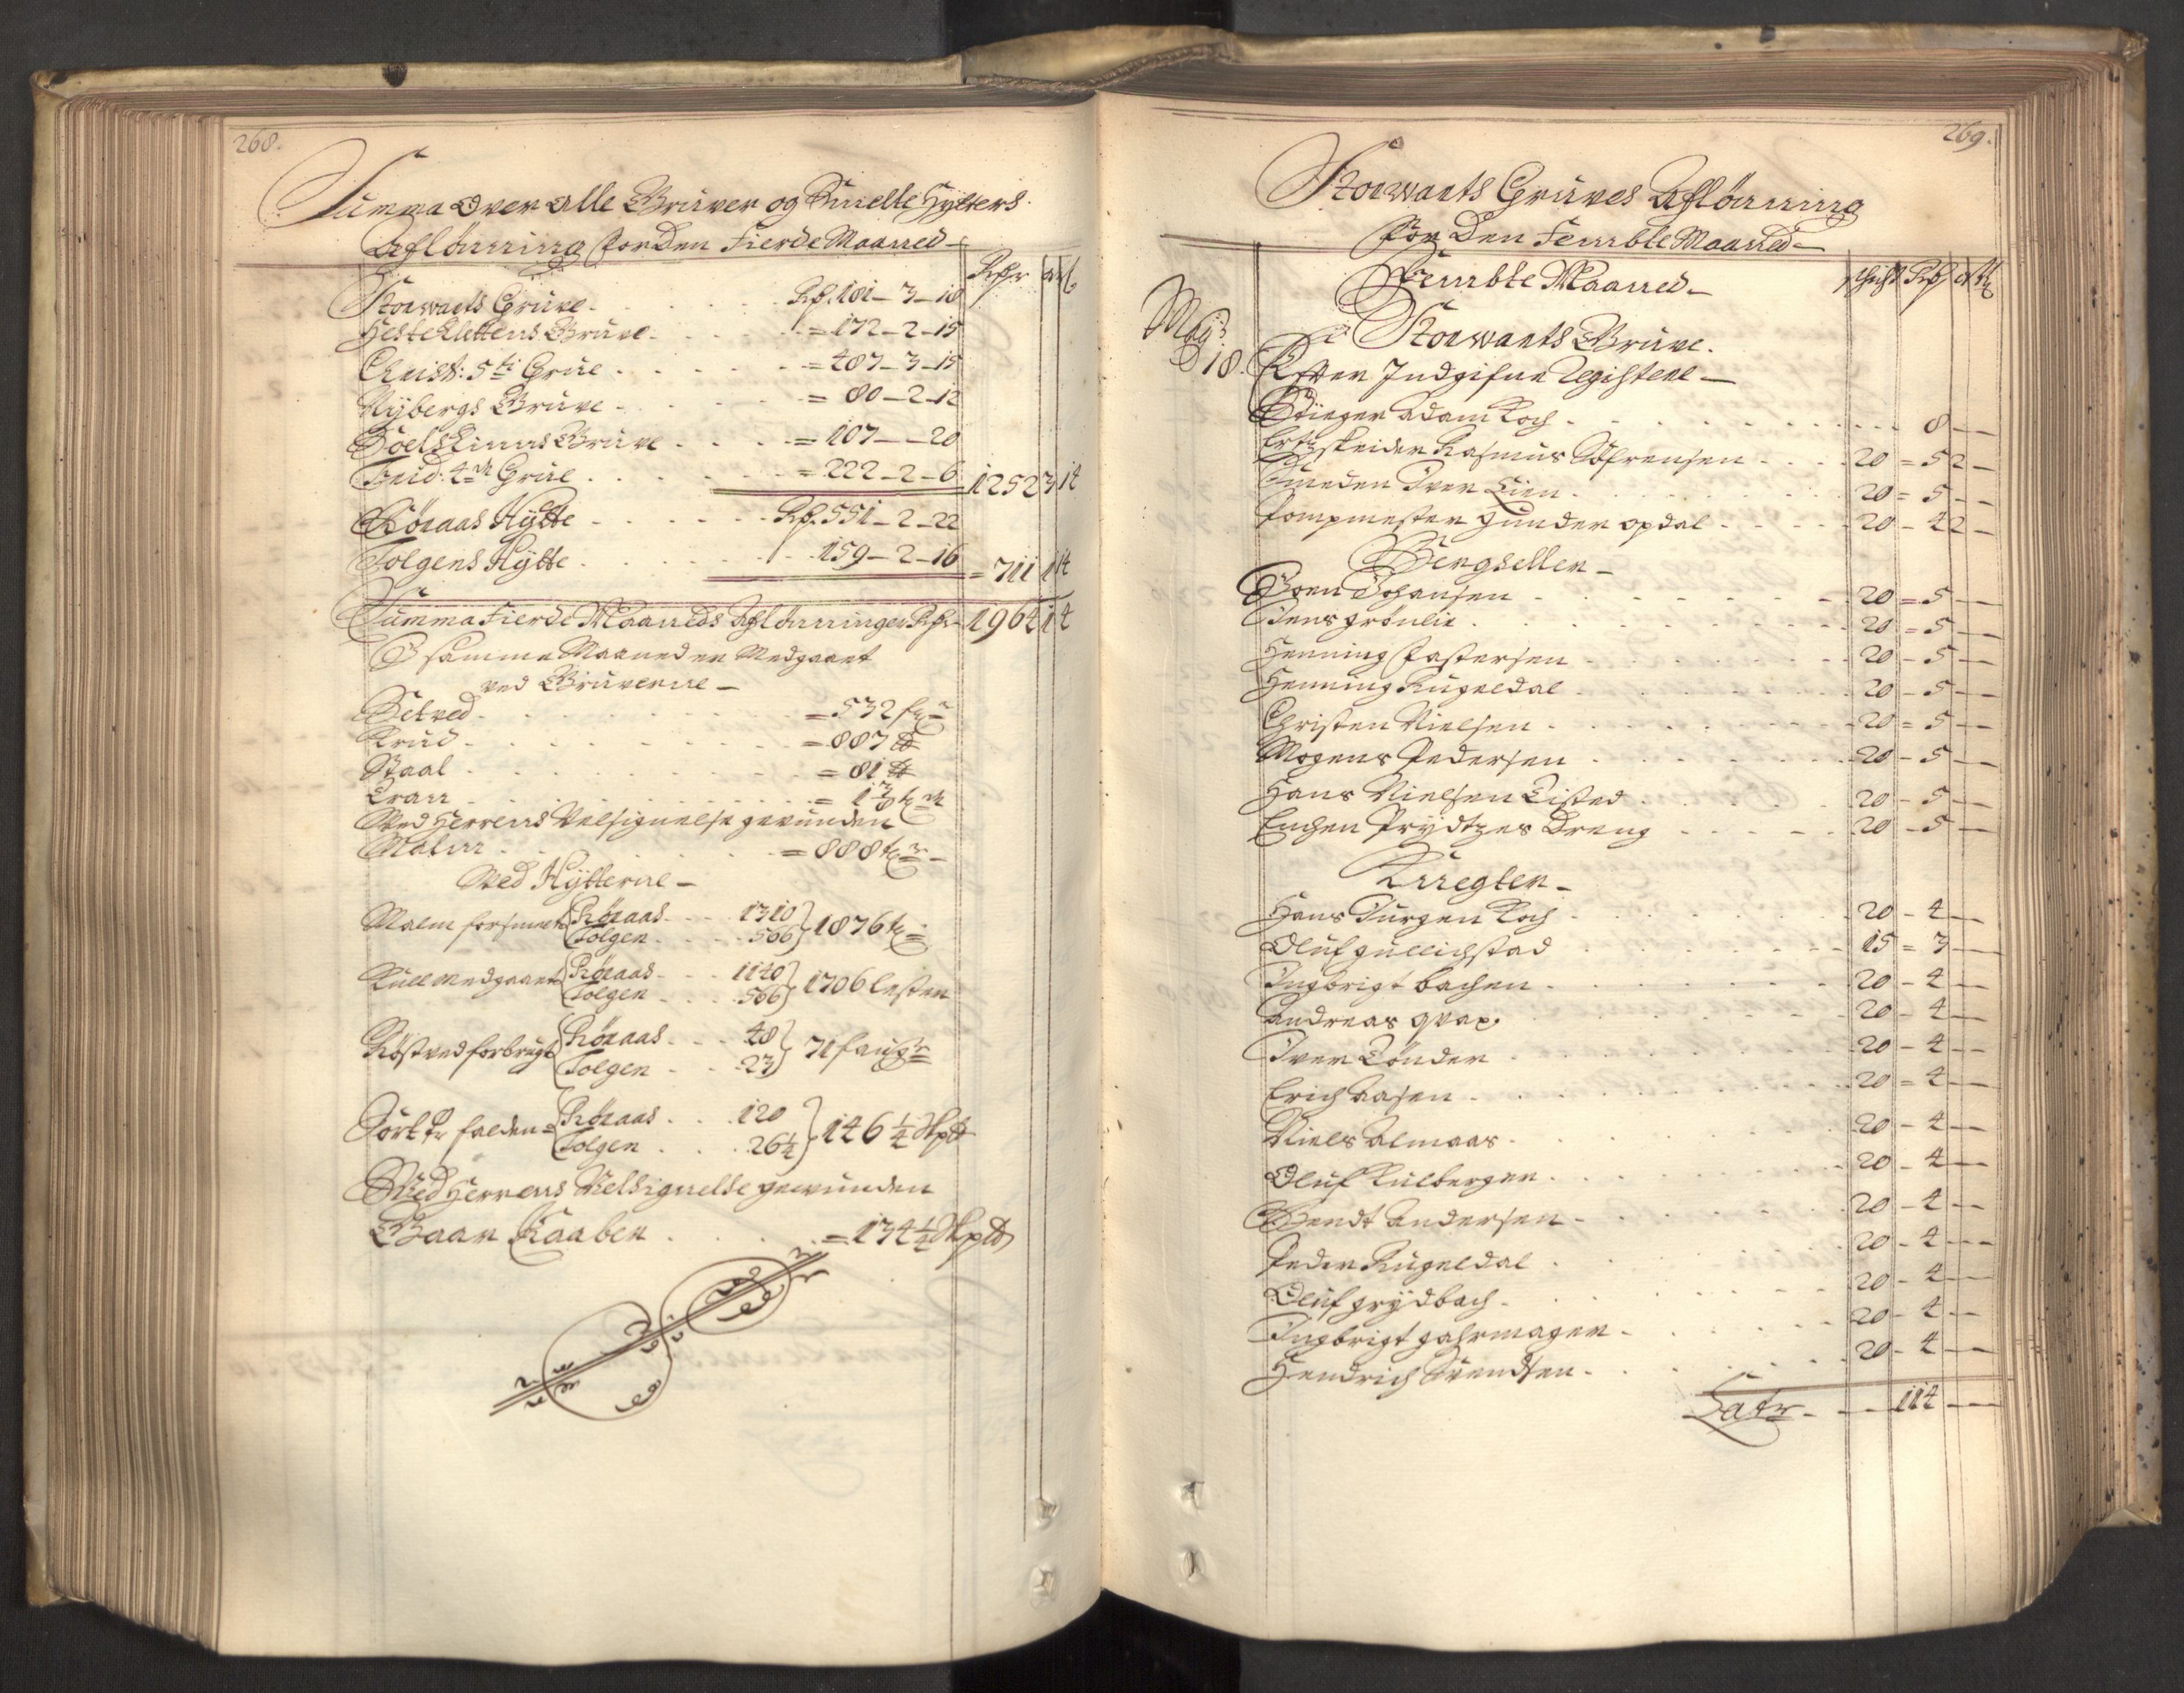 268.
Summa Over alle Gruver og Smelte Hytters
Aflönning for Den Fierde Maaned
Rdr
Storwarts Gruve - Rdr. 181 - 3 - 18
Hesteklettens Gruve - = 172 - 2 - 15
Christ: 5ti Grue - = 487 - 3 - 15
Nybergs Gruve - = 80 - 2 - 12
Soelskinns Gruve - = 107 - - 20
Frid: 4de Grue - = 222 - 2 - 6 = 1252 3 14
Röraas Hytte - Rdr. 551 - 2 - 22
Tolgens Hytte - 159 - 2 - 16 = 711 1 14
Summa Fierde Maaneds Aflönninger Rdr 1964 1 4
I samme Maaned er Medgaaet
ved Gruverne
Setved - = 532 f
Krud - = 887 ℔
Staal - = 81 ℔
Tran
Med Herrens Velsignelse gevunden
Malm - = 888 t
Ved Hytterne
Malm forsmeltet Röraas - 1310
Tolgen - 566 } 1876 t
Kull medgaaet Röraas - 1140
Tolgen - 566 } 1706 lester
Röstved forbrugt Röraas - 48
Tolgen - 23 } 71 faugr
falden Röraas - 120
Tolgen - 26¼ } 146 ¼
Med Herrens Velsignelse gewunden
Gaar Kaaber - = 134 ¼
269.
Storwarts Gruves Aflönning
For Den Fembte Maaned
Fembte Maaned schicht Rdr
Storwarts Gruve.
Maij
D 18. Efter Indgifne Registere
Stieger Adam Koch - 8 -
Ertzskeider Rasmus Söfrensen - 20 = 5 2 -
Smeden Iver Lien - 20 = 5 - -
Pompmester Gunder opdal - 20 - 4 2 -
Bergseller
Joen Johansen - 20 = 5 -
Jens Grönlie - 20 = 5 -
Henning Pastersen - 20 - 5 -
Henning Kugeldal - 20 - 5 -
Christen Nielsen - 20 = 5 -
Mogens Pedersen - 20 - 5 -
Hans Nielsen - 20 - 5 -
Prydtzes Dreng - 20 - 5 -
Knegter
Hans Jürgen Koch - 20 - 4 -
Oluf Gullichstad - 15 = 3 -
Ingbrigt Bachen - 20 - 4 -
Andreas qvap. - 20 - 4 -
Iver Tönder - 20 - 4 -
Erich Aasen - 20 = 4 -
Niels Almaas - 20 - 4 -
Oluf Kulberger - 20 - 4 -
Bendt Andersen - 20 - 4 -
Peder Kugeldal - 20 - 4 -
Oluf Grydbach - 20 - 4 -
Ingbrigt Gahrmager - 20 - 4 -
Hendrich Svendsen - 20 - 4 -
Latr - 114 -